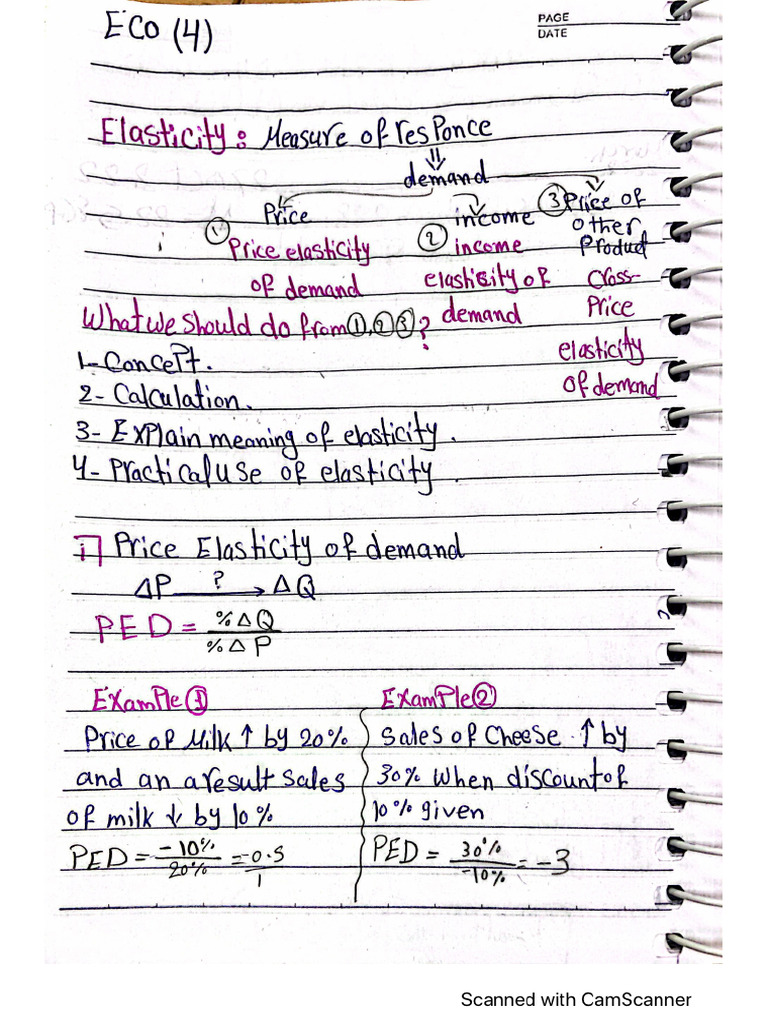 ECO (4)
PAGE
DATE
Elasticity: Measure of resPonce
⇓
demand
① Price
Price elasticity
of demand
② income
income
elasticity of
demand
③ Price of
other
Product
Cross-
Price
elasticity
of demand
What we should do from ①, ② ③?
1- Concept.
2- Calculation.
3- Explain meaning of elasticity.
4- Practical use of elasticity.
i] Price Elasticity of demand
ΔP ?→ ΔQ
PED = %ΔQ / %ΔP
Example ①
Price of Milk ↑ by 20%
and an a result sales
of milk ↓ by 10%
PED = -10% / 20% = -0.5 / 1
Example ②
Sales of Cheese ↑ by
30% when discount of
10% given
PED = 30% / -10% = -3
Scanned with CamScanner